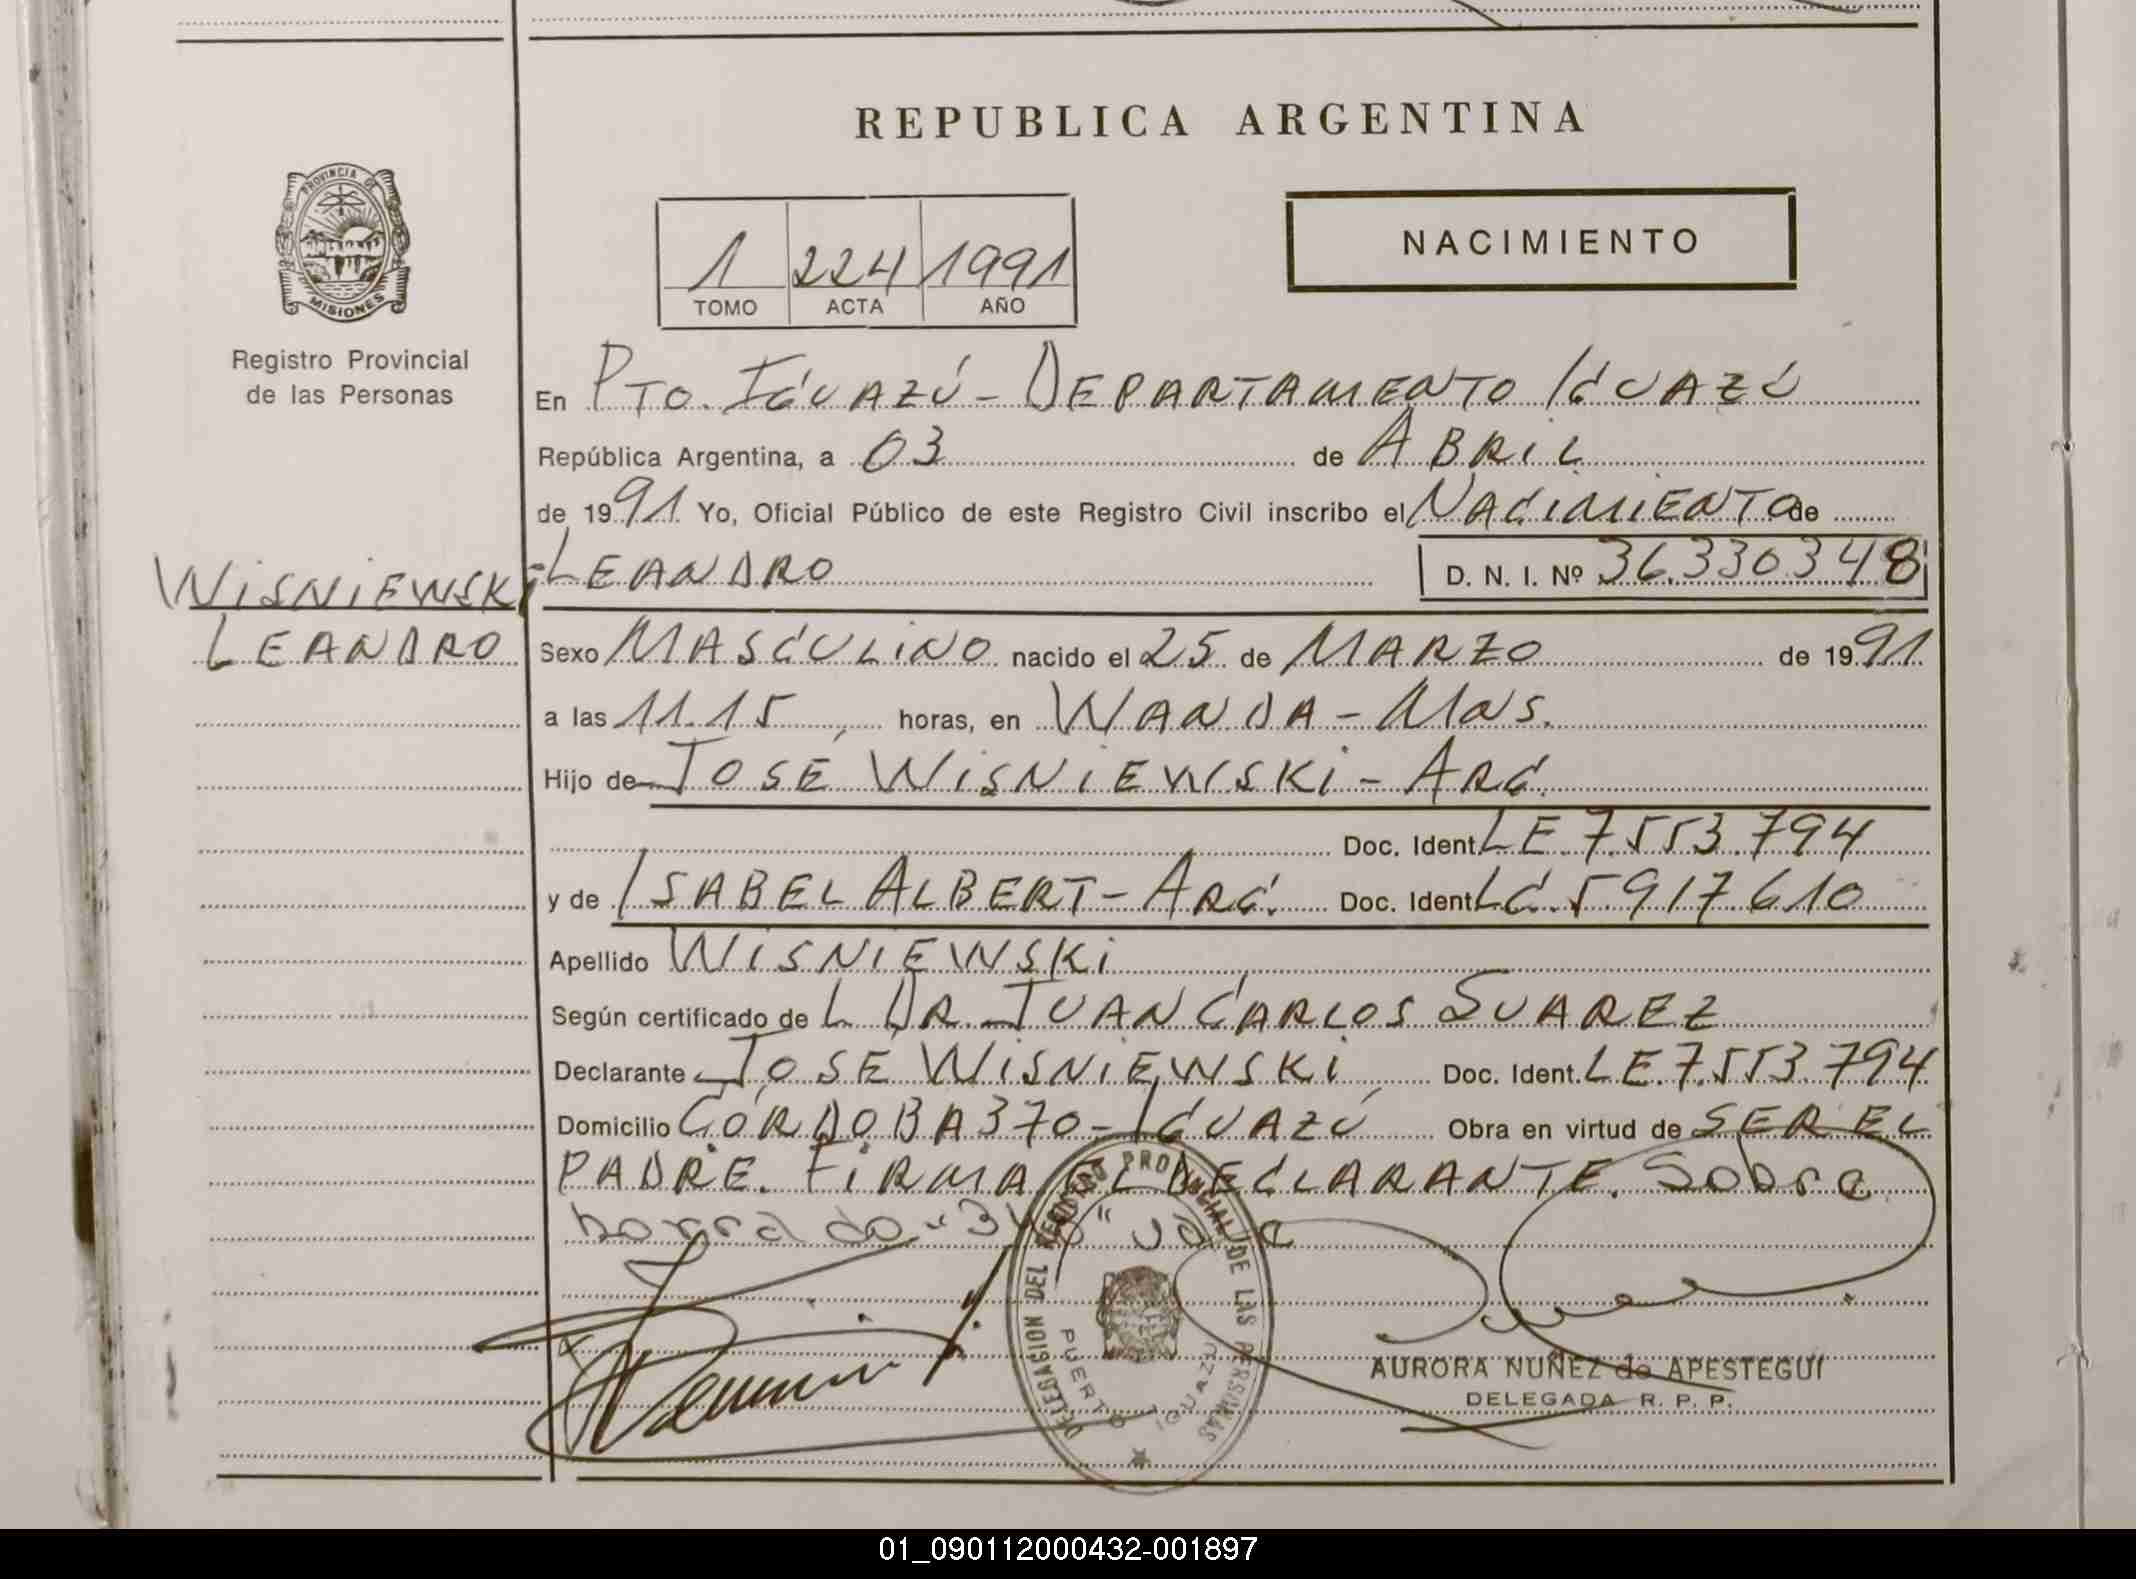 REPUBLICA ARGENTINA
PROVINCIA DE
MISIONES
Registro Provincial
de las Personas
1 224 1991
TOMO ACTA AÑO
NACIMIENTO
En PTO. IGUAZÚ - DEPARTAMENTO IGUAZÚ
República Argentina, a 03 de ABRIL
de 1991 Yo, Oficial Público de este Registro Civil inscribo el NACIMIENTO de
LEANDRO D. N. I. Nº 36.330.348
WISNIEWSKI
LEANDRO
Sexo MASCULINO nacido el 25 de MARZO de 1991
a las 11.15, horas, en WANDA - MNS.
Hijo de JOSÉ WISNIEWSKI - ARG.
Doc. Ident. LE 7.553.794
y de ISABEL ALBERT - ARG. Doc. Ident. LC. 5917610
Apellido WISNIEWSKI
Según certificado de L DR. JUAN CARLOS SUAREZ
Declarante JOSE WISNIEWSKI Doc. Ident. LE. 7.553.794
Domicilio CÓRDOBA 370 - IGUAZÚ Obra en virtud de SER EL
PADRE. FIRMA EL DECLARANTE. Sobre
borrado "3 " vale
DELEGACION DEL REGISTRO PROVINCIAL DE LAS PERSONAS
PUERTO IGUAZU
AURORA NUÑEZ de APESTEGUI
DELEGADA R. P. P.
01_090112000432-001897